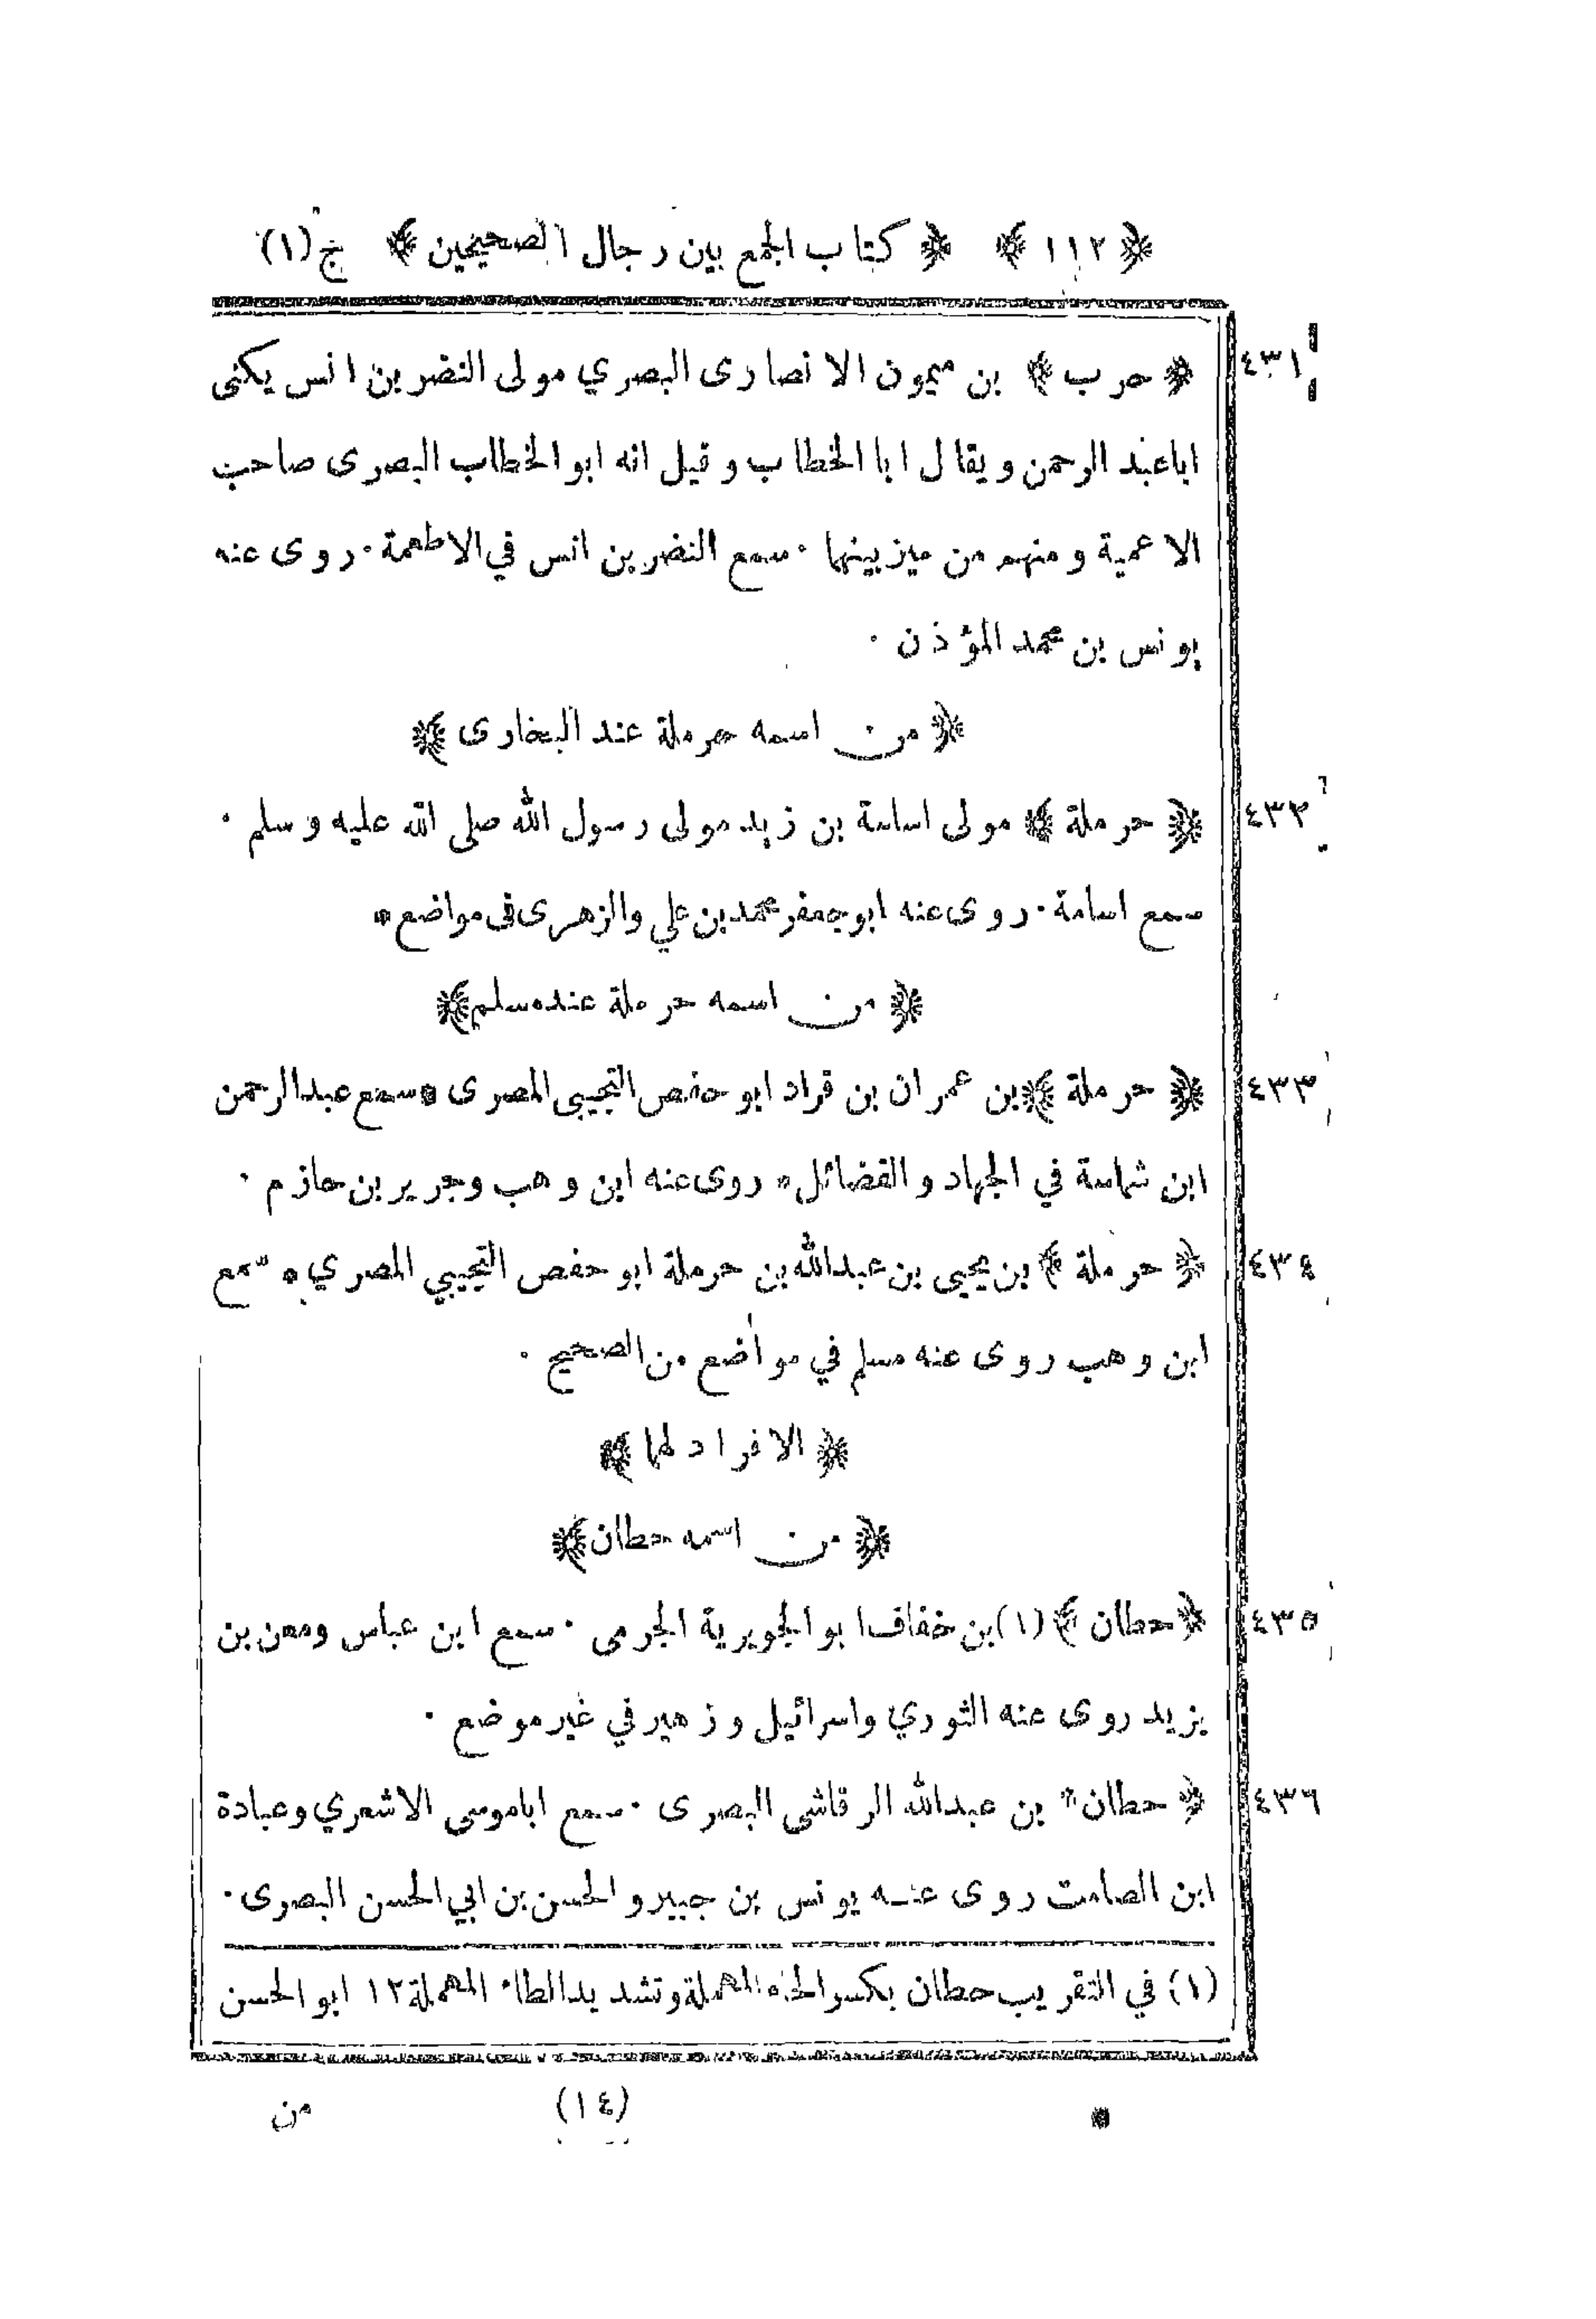 ﴿ ١١٢ ﴾ ﴿ كتاب الجمع بين رجال الصحيحين ﴾ ج (١)
٤٣١ ﴿ حرب ﴾ بن ميمون الانصارى البصري مولى النضر بن انس يكنى
ابا عبد الرحمن ويقال ابا الخطاب وقيل انه ابو الخطاب البصرى صاحب
الاعمية ومنهم من ميز بينهما ٠ سمع النضر بن انس في الاطعمة ٠ روى عنه
يونس بن محمد المؤذن ٠
﴿ من اسمه حرملة عند البخارى ﴾
٤٣٢ ﴿ حرملة ﴾ مولى اسامة بن زيد مولى رسول الله صلى الله عليه وسلم ٠
سمع اسامة ٠ روى عنه ابو جعفر محمد بن علي والزهرى فى مواضع *
﴿ من اسمه حرملة عند مسلم ﴾
٤٣٣ ﴿ حرملة ﴾ بن عمران بن قراد ابو حفص التجيبى المصرى * سمع عبد الرحمن
ابن شماسة في الجهاد والفضائل * روى عنه ابن وهب وجرير بن حازم ٠
٤٣٤ ﴿ حرملة ﴾ بن يحيى بن عبد الله بن حرملة ابو حفص التجيبي المصري * سمع
ابن وهب روى عنه مسلم في مواضع من الصحيح ٠
﴿ الافراد لهما ﴾
﴿ من اسمه حطان ﴾
٤٣٥ ﴿ حطان ﴾ (١) بن خفاف ابو الجويرية الجرمى ٠ سمع ابن عباس ومعن بن
يزيد روى عنه الثوري واسرائيل وزهير في غير موضع ٠
٤٣٦ ﴿ حطان * بن عبد الله الرقاشى البصرى ٠ سمع ابا موسى الاشعري وعبادة
ابن الصامت روى عنه يونس بن جبير والحسن بن ابي الحسن البصرى ٠
(١) في التقريب حطان بكسر الحاء المهملة وتشديد الطاء المهملة ١٢ ابو الحسن
* (١٤) من